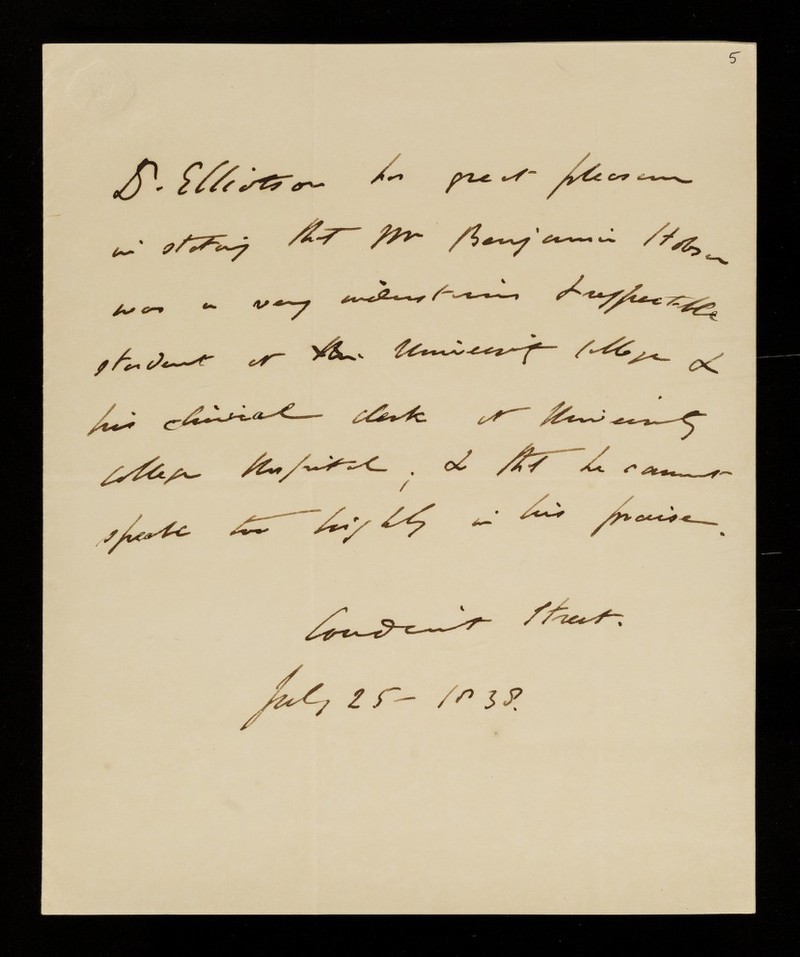 5
Dr. Elliotson has great pleasure
in stating that Mr Benjamin Hobson
was a very industrious & respectable
student at the University College &
his clinical clerk at University
College Hospital; & that he cannot
speak too highly in his praise.
Conduit Street.
July 25 – 1838.